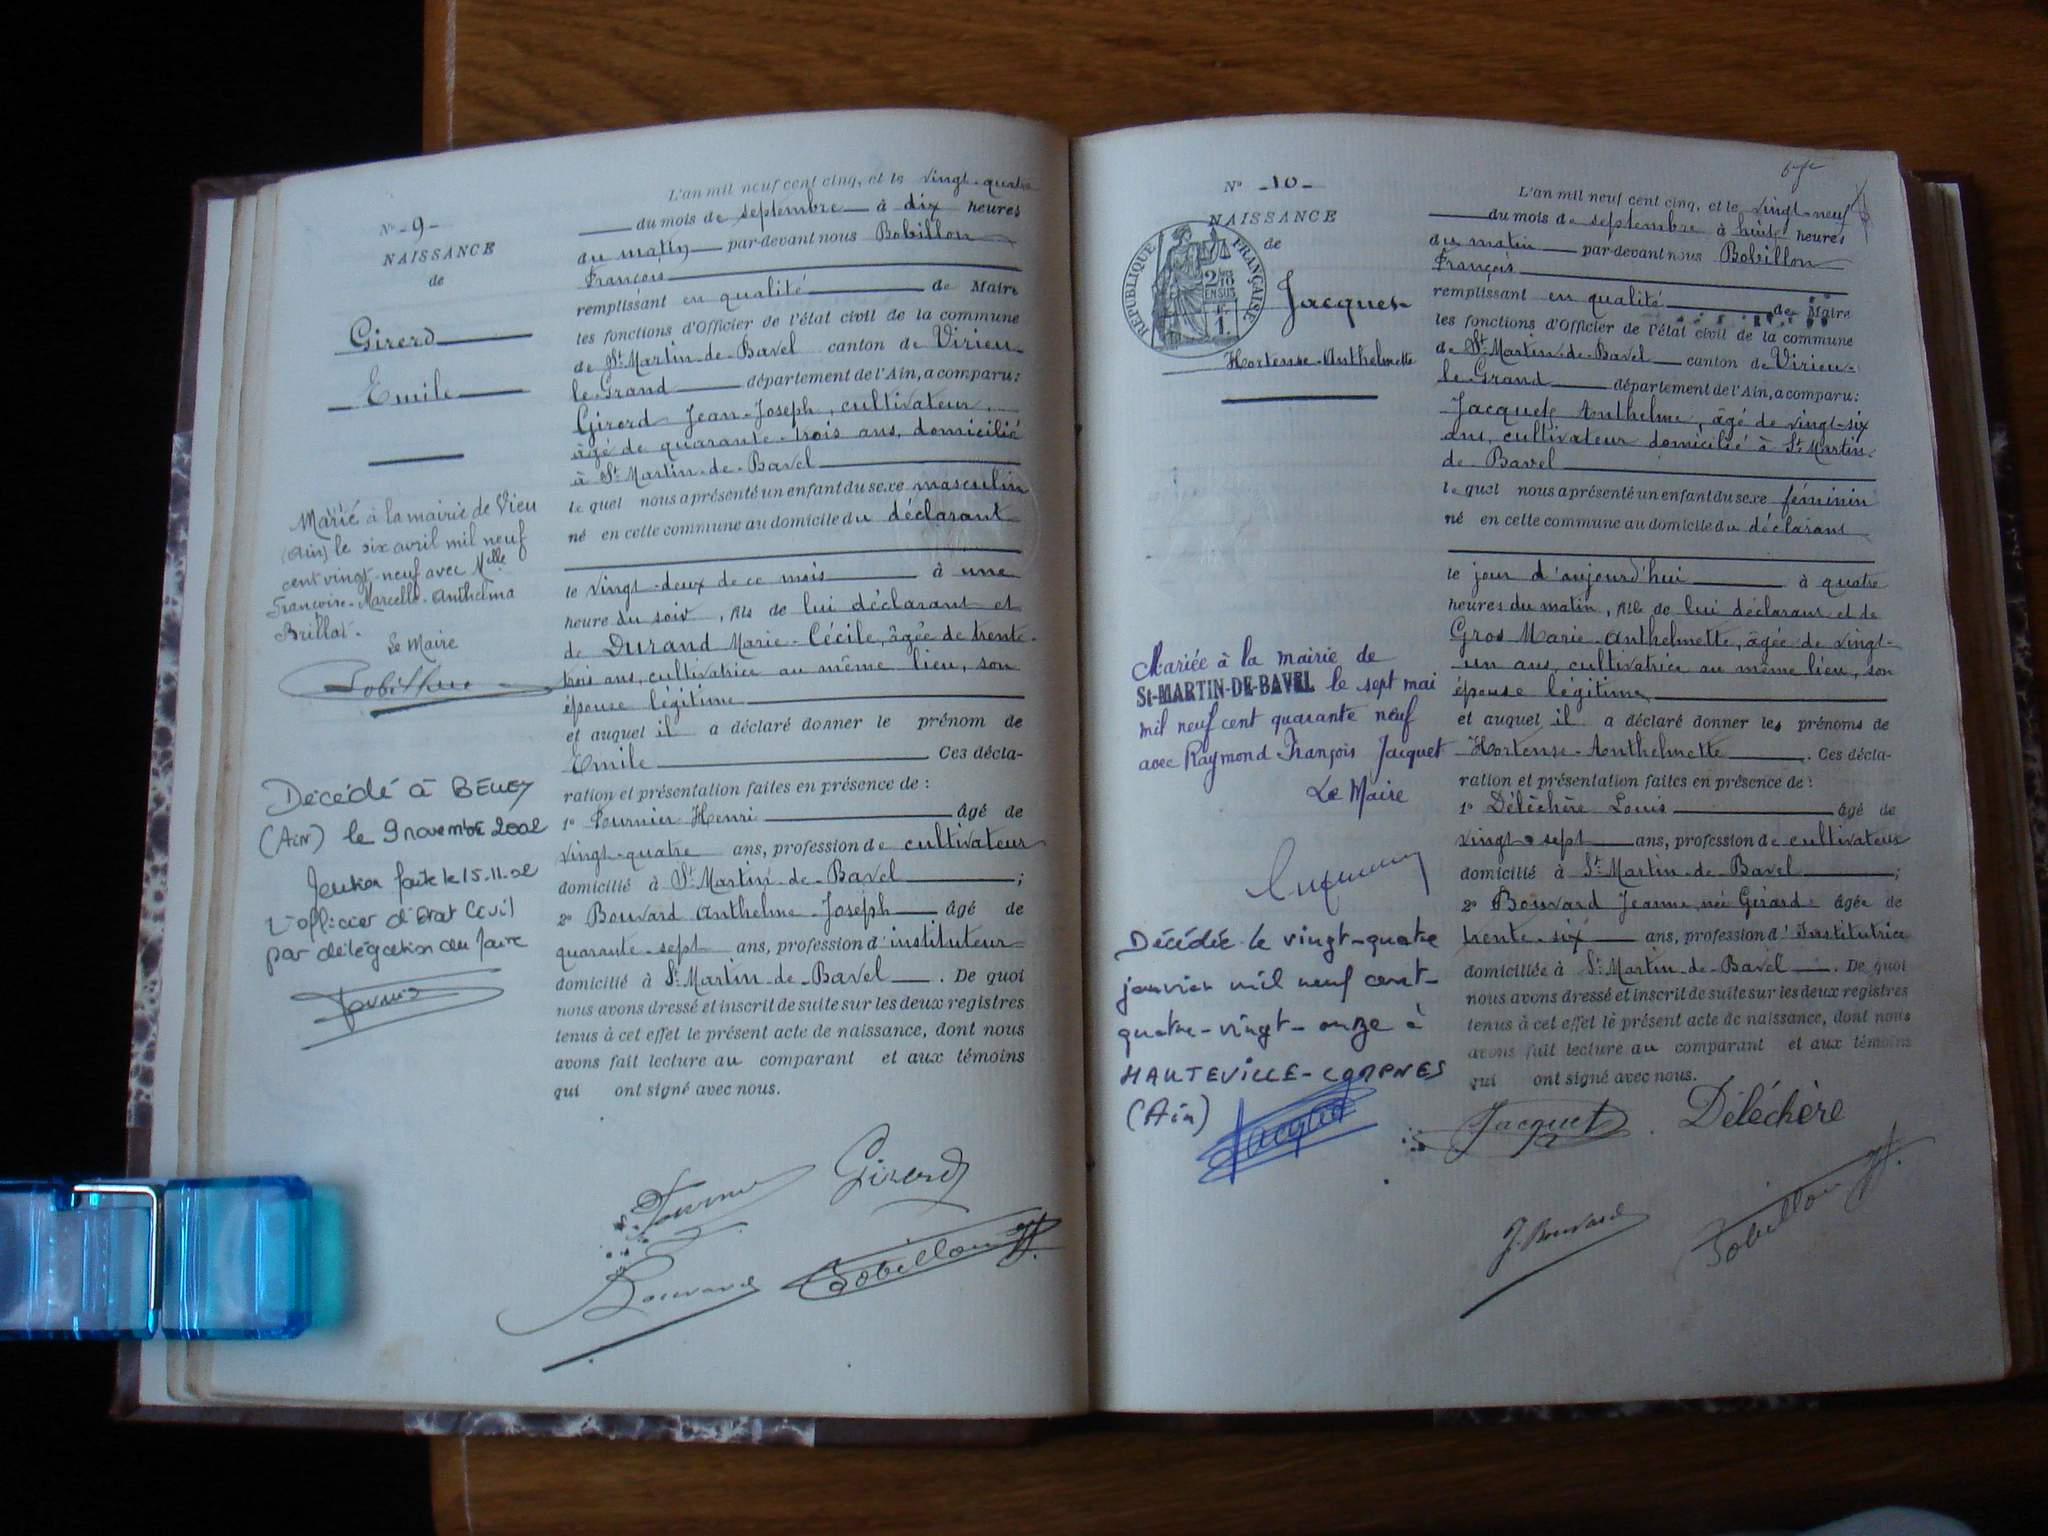 N° - 9 -
NAISSANCE
de
Girerd
Emile
Marié à la mairie de Vieu
(Ain) le six avril mil neuf
cent vingt-neuf avec Melle
Françoise-Marcelle-Anthelma
Brillat.
Le Maire
Bobillon
Décédé à BELLEY
(Ain) le 9 novembre 2002
faite le 15.11.02
L'officier d'Etat Civil
par délégation du Maire
L'an mil neuf cent cinq, et le vingt-quatre
du mois de septembre à dix heures
du matin par-devant nous Bobillon
François
remplissant en qualité de Maire
les fonctions d'Officier de l'état civil de la commune
de St Martin-de-Bavel canton de Virieu-
le-Grand département de l'Ain, a comparu :
Girerd Jean-Joseph, cultivateur,
âgé de quarante-trois ans, domicilié
à St Martin-de-Bavel
le quel nous a présenté un enfant du sexe masculin
né en cette commune au domicile du déclarant
le vingt-deux de ce mois à une
heure du soir, fils de lui déclarant et
de Durand Marie-Cécile, âgée de trente-
trois ans, cultivatrice au même lieu, son
épouse légitime
et auquel il a déclaré donner le prénom de
Emile Ces décla-
ration et présentation faites en présence de :
1° Fournier Henri âgé de
vingt-quatre ans, profession de cultivateur
domicilié à St Martin-de-Bavel ;
2° Bouvard Anthelme-Joseph âgé de
quarante-sept ans, profession d'instituteur
domicilié à St Martin-de-Bavel . De quoi
nous avons dressé et inscrit de suite sur les deux registres
tenus à cet effet le présent acte de naissance, dont nous
avons fait lecture au comparant et aux témoins
qui ont signé avec nous.
Fournier Girerd
Bouvard Bobillon
N° - 10 -
NAISSANCE
de
RÉPUBLIQUE FRANÇAISE
2/10
EN SUS
1.
Jacquet
Hortense-Anthelmette
Mariée à la mairie de
St-MARTIN-DE-BAVEL le sept mai
mil neuf cent quarante neuf
avec Raymond-François Jacquet
Le Maire
Décédée le vingt-quatre
janvier mil neuf cent-
quatre-vingt-onze à
HAUTEVILLE-LOMPNES
(Ain)
Jacquet
L'an mil neuf cent cinq, et le vingt-neuf
du mois de septembre à huit heures
du matin par-devant nous Bobillon
François
remplissant en qualité de Maire
les fonctions d'Officier de l'état civil de la commune
de St Martin-de-Bavel canton de Virieu-
le-Grand département de l'Ain, a comparu :
Jacquet Anthelme, âgé de vingt-six
ans, cultivateur domicilié à St Martin-
de Bavel
le quel nous a présenté un enfant du sexe féminin
né en cette commune au domicile du déclarant
le jour d'aujourd'hui à quatre
heures du matin, fille de lui déclarant et de
Gros Marie-Anthelmette, âgée de vingt-
un ans, cultivatrice au même lieu, son
épouse légitime
et auquel il a déclaré donner les prénoms de
Hortense-Anthelmette . Ces décla-
ration et présentation faites en présence de :
1° Déléchère Louis âgé de
vingt-sept ans, profession de cultivateur
domicilié à St Martin-de-Bavel ;
2° Bouvard Jeanne, née Gérard âgée de
trente-six ans, profession d'Institutrice
domiciliée à St Martin-de-Bavel . De quoi
nous avons dressé et inscrit de suite sur les deux registres
tenus à cet effet le présent acte de naissance, dont nous
avons fait lecture au comparant et aux témoins
qui ont signé avec nous.
Jacquet Déléchère
J. Bouvard Bobillon